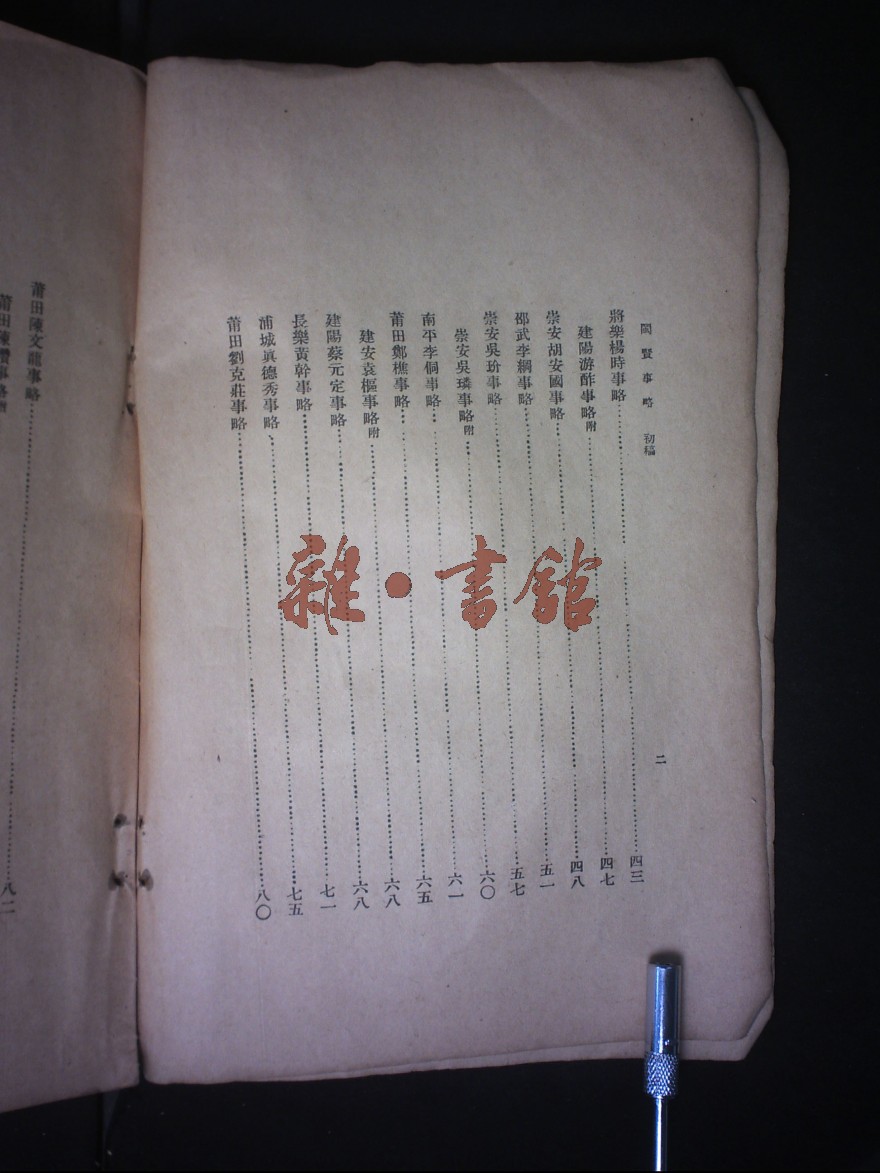 閩賢事略 初稿 二
將樂楊時事略……四三
建陽游酢事略附……四七
崇安胡安國事略……四八
邵武李綱事略……五一
崇安吳玠事略……五七
崇安吳璘事略附……六〇
南平李侗事略……六一
莆田鄭樵事略……六五
建安袁樞事略附……六八
建陽蔡元定事略……六八
長樂黃幹事略……七一
浦城眞德秀事略……七五
莆田劉克莊事略……八〇
莆田陳文龍事略……八二
莆田陳瓚事略附
雜·書館